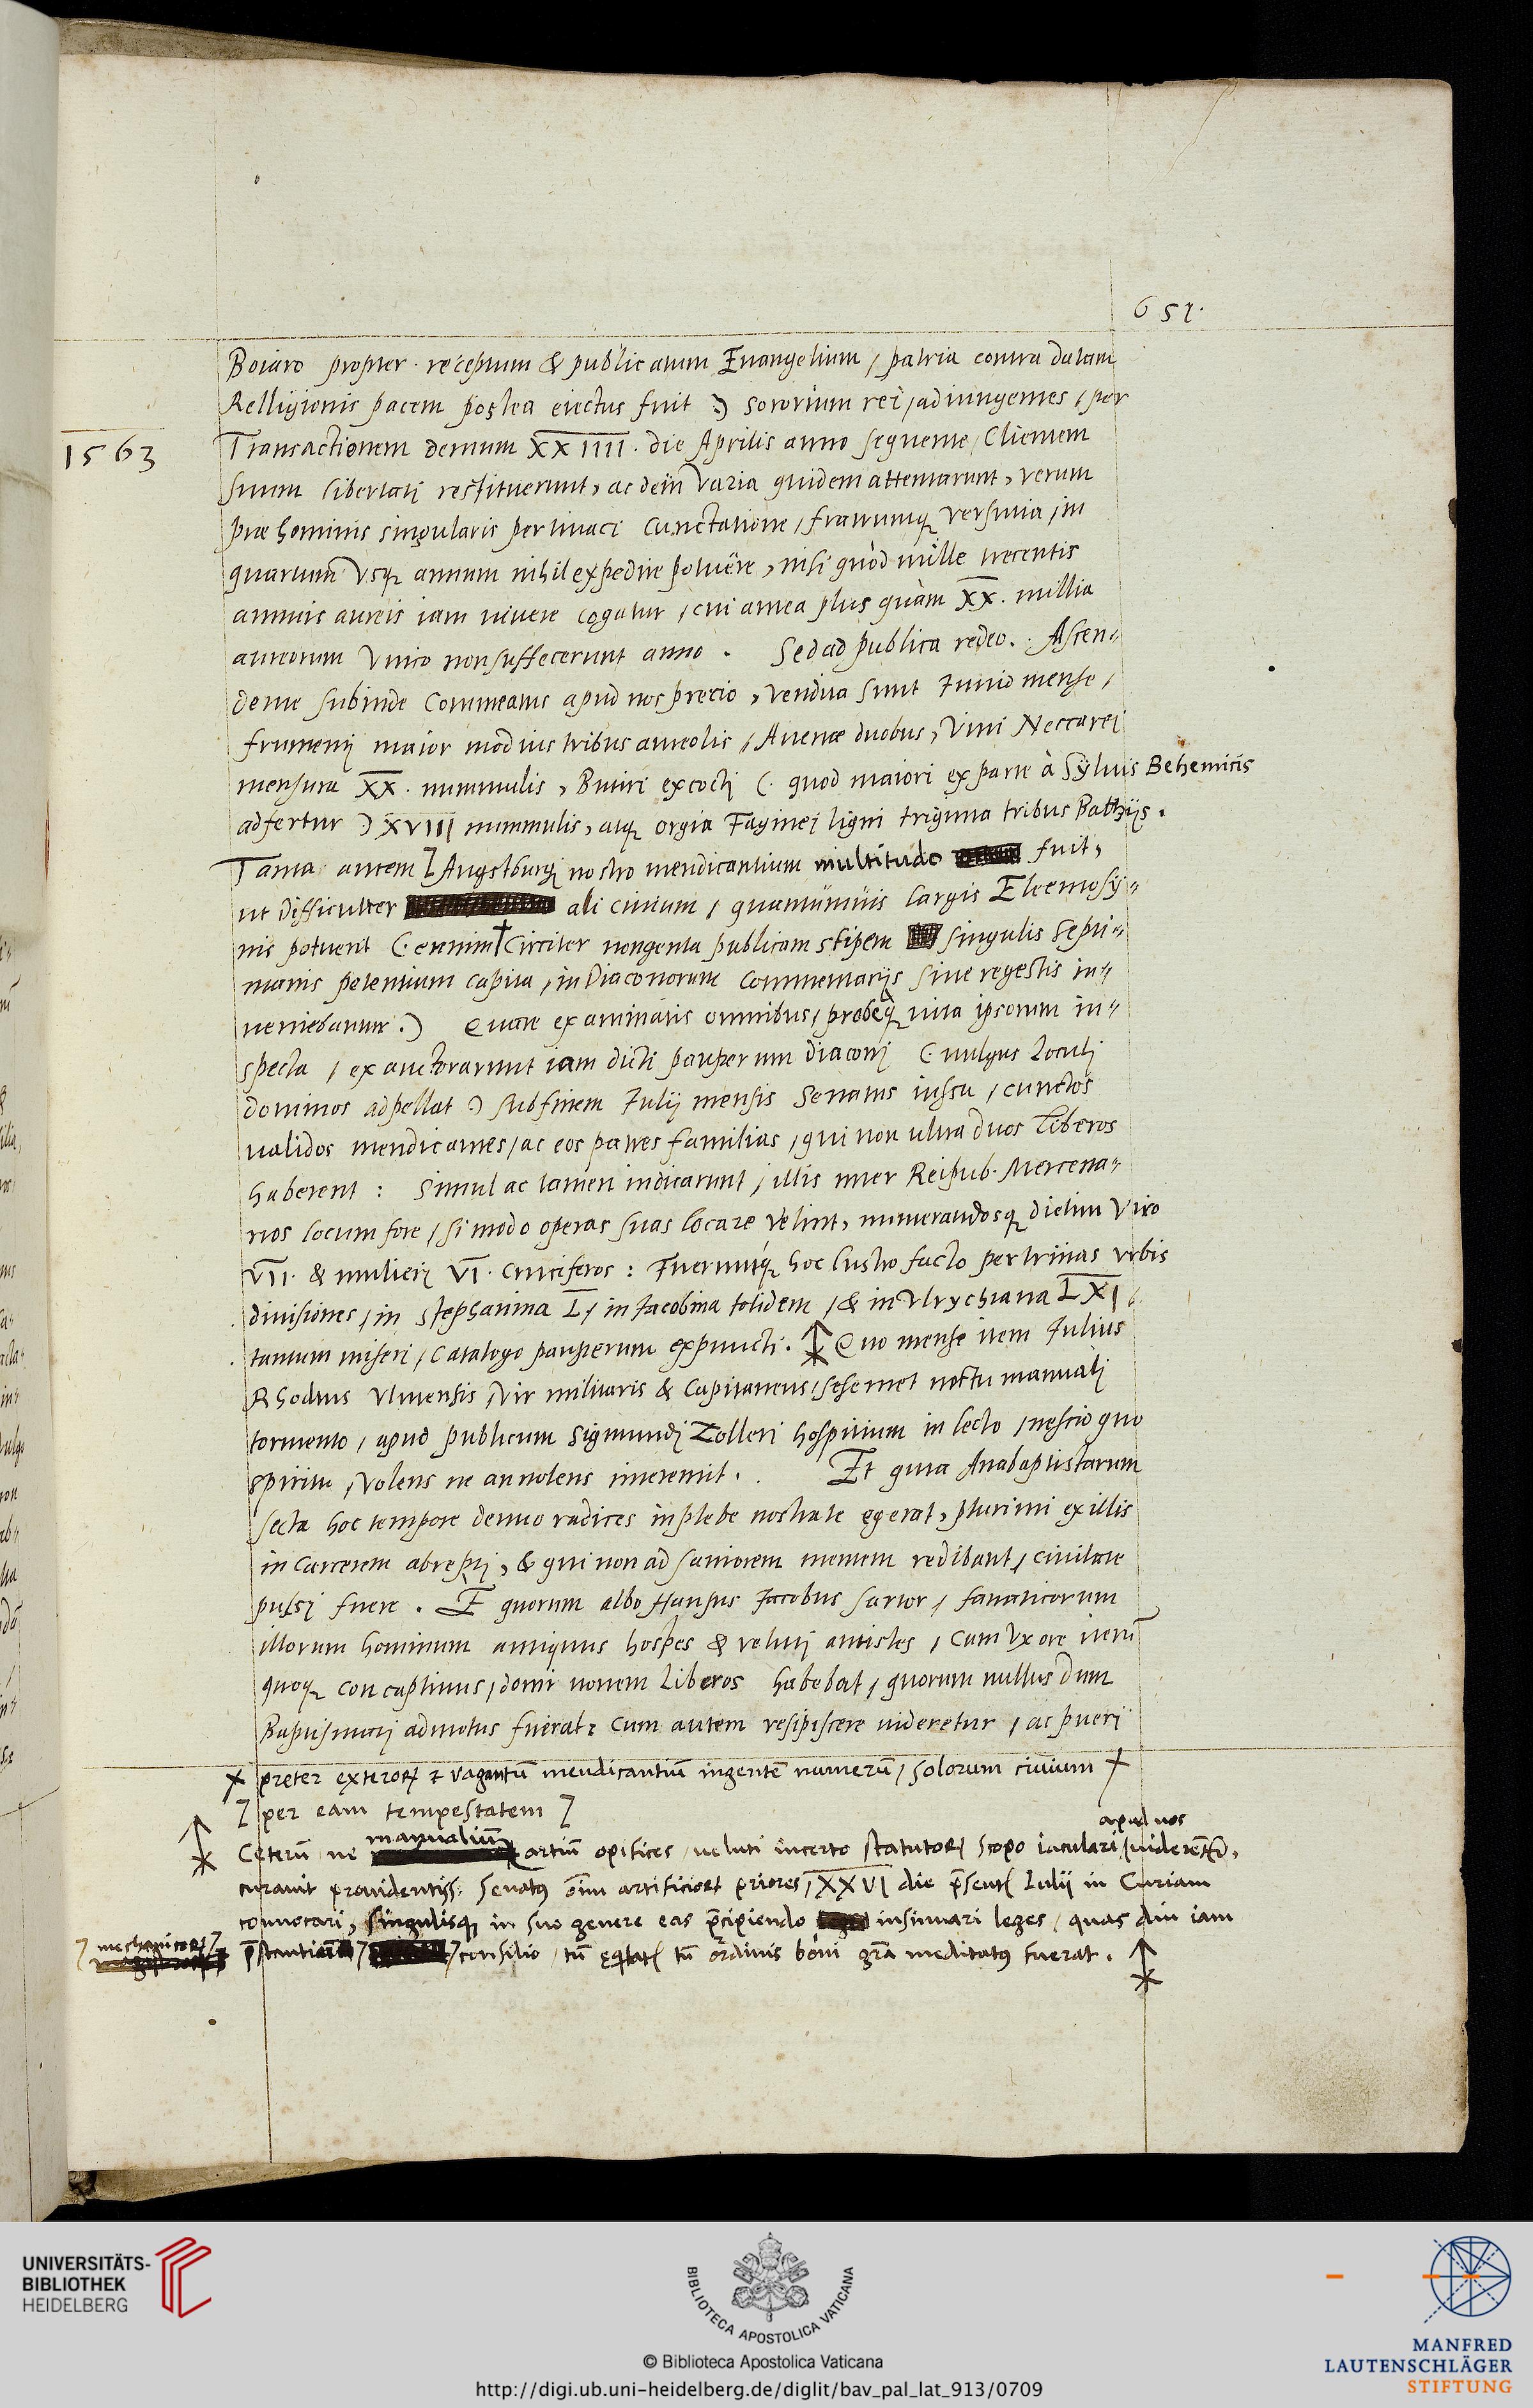 651.
Boiaro propter receptum & publicatum Euangelium / patria contra datam
Relligionis pacem postea eiectus fuit ) sororium rei / adiungentes / per
1563
Transactionem demum XXIIII. die Aprilis anno sequente / Clientem
suum libertati restituerunt, ac dein varia quidem attentarunt, verum
præ hominis singularis pertinaci cunctatione / fratrumq versutia / in
quartum vsq annum nihil expedire potuêre, nisi quòd mille trecentis
annuis aureis iam viuere cogatur / cui antea plus quàm XX. millia
aureorum vnico non suffecerunt anno. Sed ad publica redeo. Ascen-
dente subinde Commeatus apud nos precio, vendita sunt Junio mense /
frumenti maior modius tribus aureolis / Auenæ duobus, Vini Neccarei
mensura XX. nummulis, Butiri excocti (. quod maiori ex parte à Syluis Behemicis
adfertur ) XVIII nummulis, atq orgia Faginei ligni triginta tribus Batzijs.
Tanta autem ] Augstburgi nostro mendicantium multitudo fuit,
ut difficulter ali ciuium / quantumuis largis Eleemosy-
nis potuerit (. etenim † Circiter nongenta publicam stipem singulis septi-
manis petentium capita / in Diaconorum Commentarijs siue regestis in-
ueniebantur.) Quare examinatis omnibus / probeq vita ipsorum in-
specta / exauctorarunt iam dicti pauperum diaconi (. vulgus Loculi
dominos adpellat ) sub finem Julij mensis Senatus iussu / cunctos
validos mendicantes / ac eos patres familias / qui non ultra duos liberos
haberent : Simul ac tamen indicarunt / illis inter Reipub. Mercena-
rios locum fore / si modo operas suas locare velint, numerandosq dietim Viro
VII. & mulieri VI. cruciferos : Fueruntq hoc lustro facto per trinas vrbis
diuisiones / in Stephanina L / in Jacobina totidem / & in Vlrychiana LXI
tantum miseri / Catalogo pauperum expuncti. Quo mense item Julius
Rhodius Vlmensis / Vir militaris & Capitaneus / sesemet noctu manuali
tormento / apud publicum Sigmundi Zolleri hospitium in lecto / nescio quo
spiritu / volens ne an nolens interemit. Et quia Anabaptistarum
secta hoc tempore denuo radices in plebe nostrate egerat, plurimi ex illis
in carcerem abrepti, & qui non ad saniorem mentem redibant / ciuitate
pulsi fuere. E quorum albo Hansus Jacobus sartor / fanaticorum
illorum hominum antiquus hospes & veluti antistes / cum Vxore iterū
quoq concaptiuus / domi nouem liberos habebat / quorum nullus dum
Baptismati admotus fuerat: Cum autem resipiscere videretur / ac pueri
† preter exteror & vagantū mendicantiū ingentē numerū / solorum ciuium †
] per eam tempestatem ]
apud nos
manualiū
Ceterū ne artiū opifices / veluti incerto statutor scopo iaculari / viderent,
curauit prouidentiss. Senatus oīm artificior priores / XXVI die p̄senti Iulii in Curiam
conuocari, singulisq in suo genere eas p̄cipiendo insinuari leges / quas diu iam
] mechanicas ]
consilio / tū tū ordinis boni gr̄a meditatus fuerat.
UNIVERSITÄTS-
BIBLIOTHEK
HEIDELBERG
BIBLIOTECA APOSTOLICA VATICANA
© Biblioteca Apostolica Vaticana
http://digi.ub.uni-heidelberg.de/diglit/bav_pal_lat_913/0709
MANFRED
LAUTENSCHLÄGER
STIFTUNG